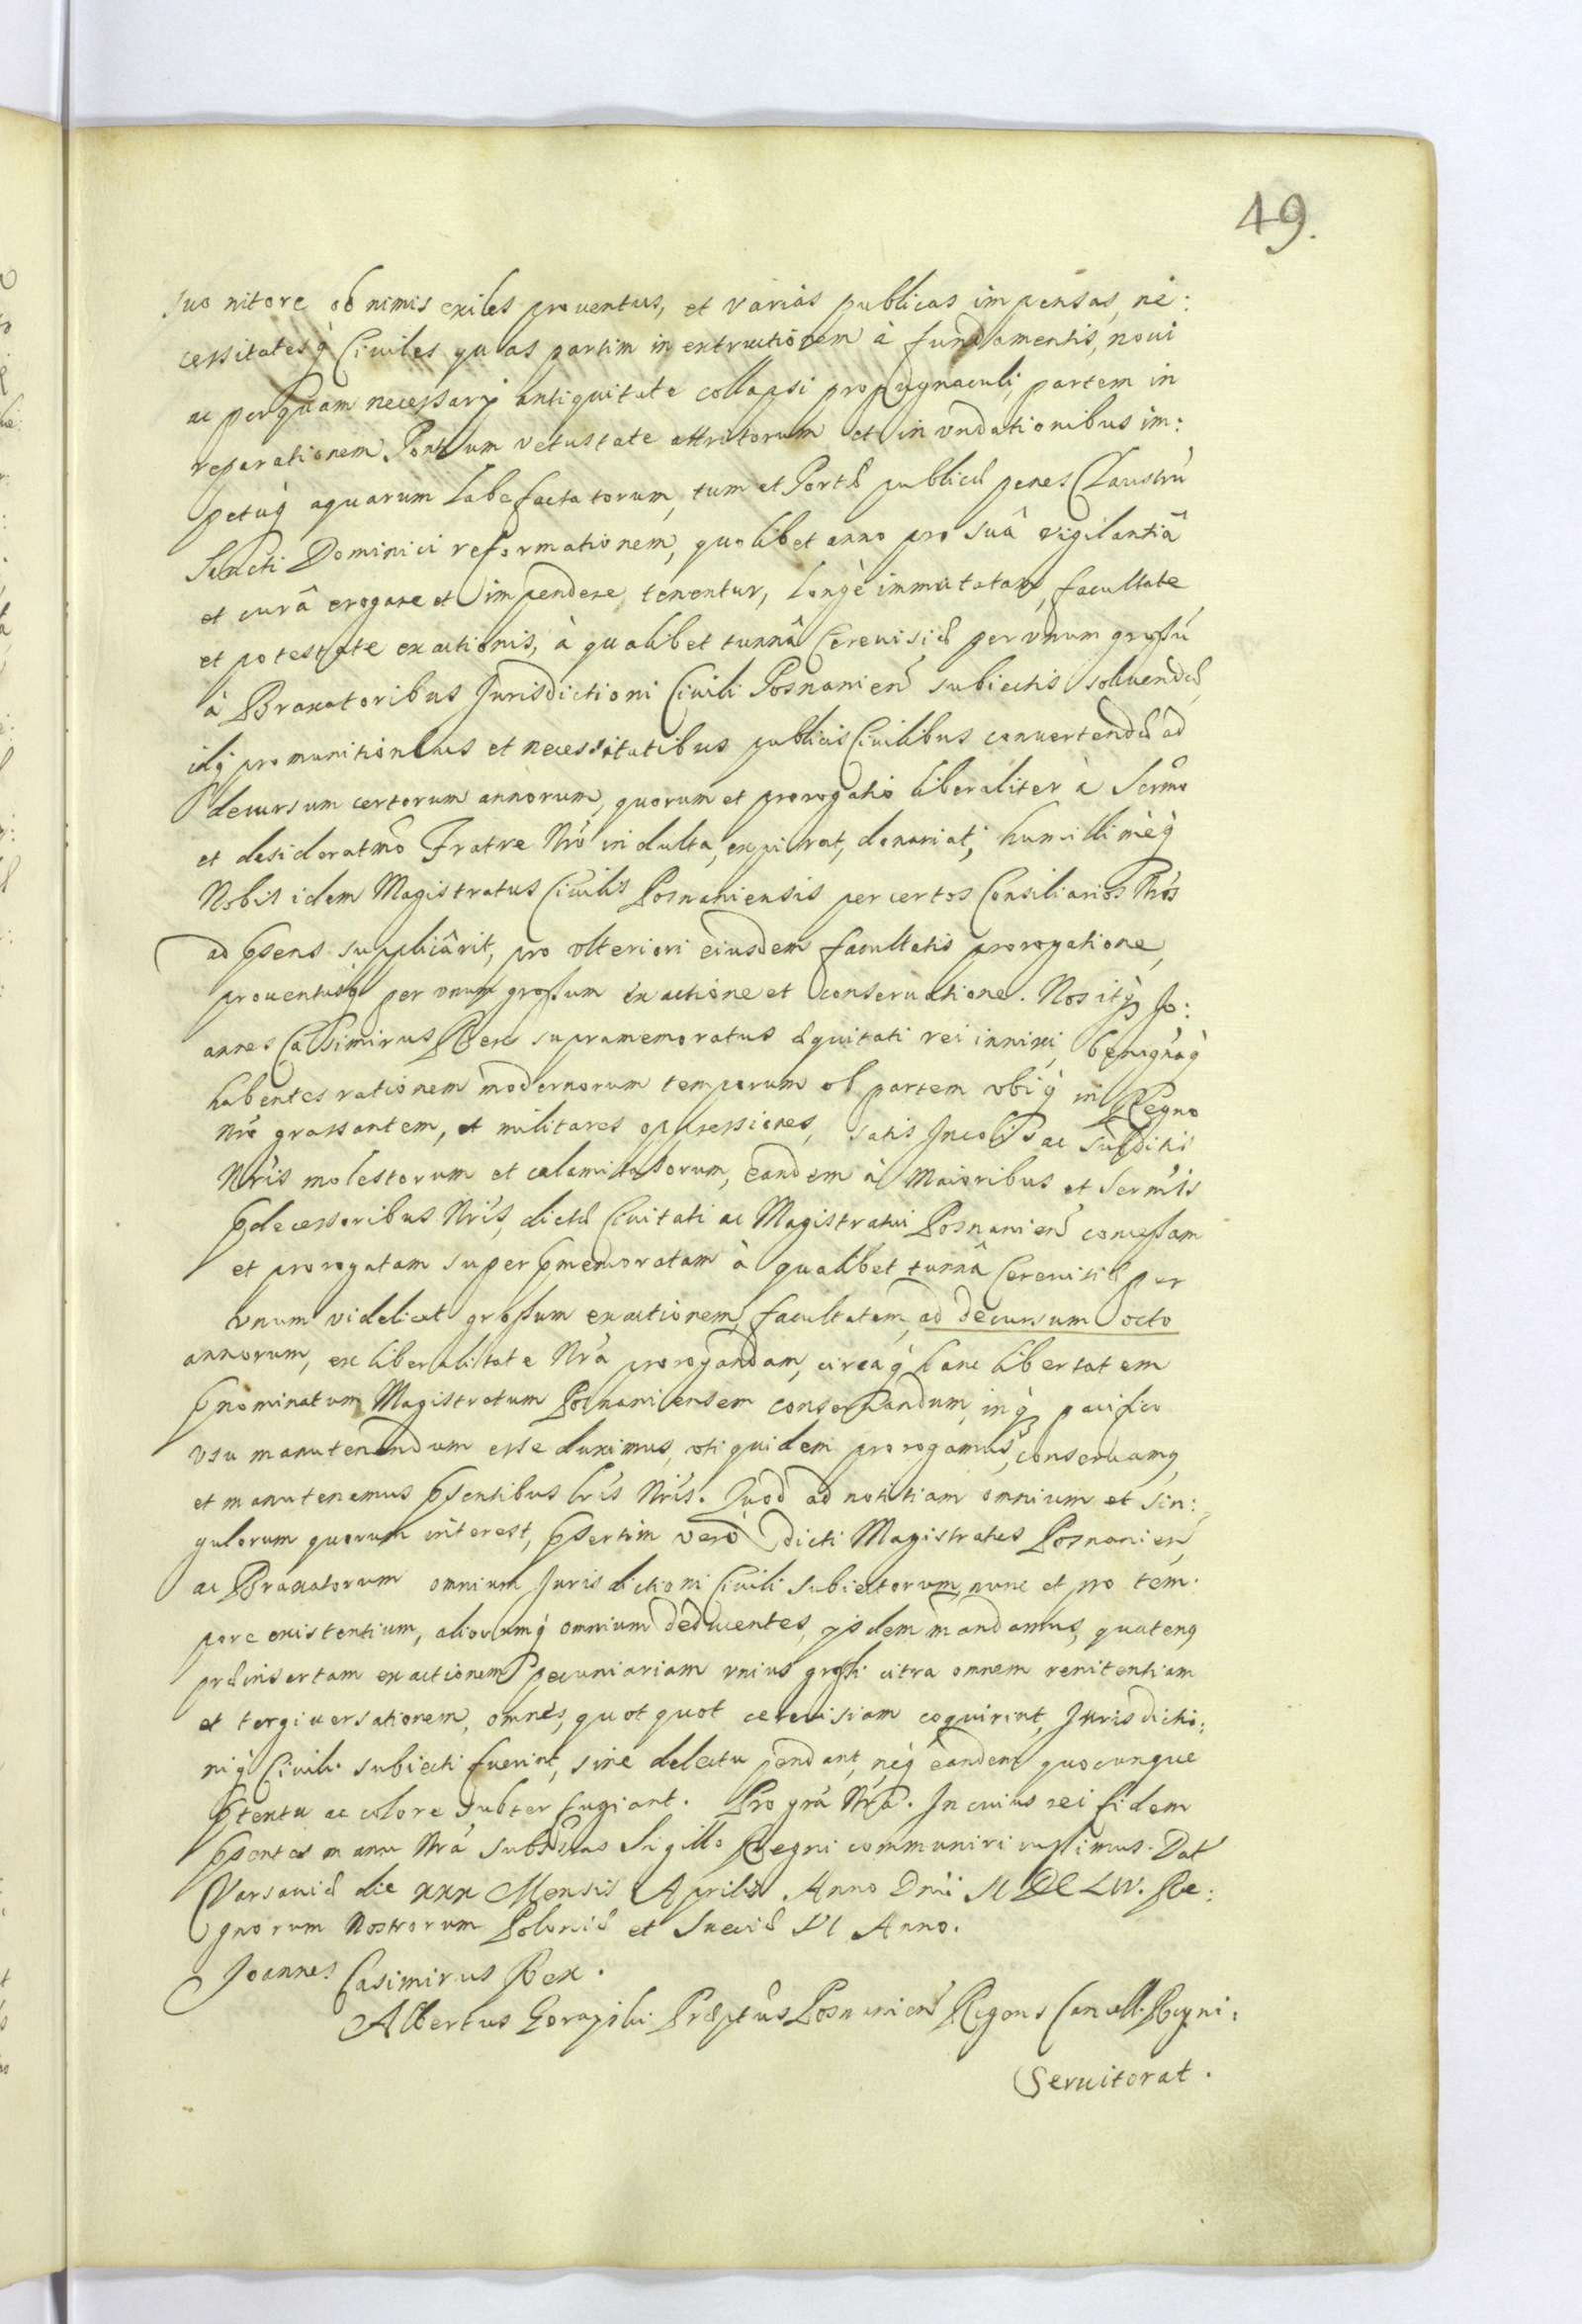 49.
suo nitore ob nimis exiles prouentus, et varias publicas impensas, ne:
cessitatesq́ Ciuiles quas partim in extructionem à fundamentis, noui
ac perquam necessarij antiquitate collapsi propugnaculi, partem in
reparationem Pontium vetustate attritorum et in vndationibus im:
petuq́ aquarum labefactatorum, tum et Portæ publicæ penes Claustrū
Sancti Dominici reformationem, quolibet anno pro suâ vigilantiâ
et curâ erogare et impendere tenentur, longè immutatam, facultate
et potestate exactionis, à qualibet tunnâ Cereuisiæ per vnum grossū
à Braxatoribus Jurisdictioni Ciuili Posnanien̄ subiectis soluendæ,
idq́ pro munitionibus et necessitatibus publicis Ciuilibus conuertendæ ad
decursum certorum annorum, quorum et prorogatio liberaliter à Sermo
et desideratmo Fratre Nr̃o indulta, expirat, donariat; humillimeq́
Nobis idem Magistratus Ciuilis Posnaniensis per certos Consiliarios Nr̃os
ad p̃sens supplicârit, pro vlteriori eiusdem facultatis prorogatione,
prouentusq́ per vnum grossum exactione et conseruatione. Nos itq́ȝ Jo:
annes Casimirus Rex supramemoratus æquitati rei innixi, benignaq́
habentes rationem modernorum temporum ob partem vbiq́ in Regno
Nr̃o grassantem, et militares oppressiones, satis Incolis ac Subditis
Nr̃is molestorum et calamitosorum, eandem à Maioribus et Sermis
p̃decessoribus Nr̃is, dictæ Ciuitati ac Magistratui Posnanien̄ concessam
et prorogatam super p̃memoratam à qualibet tunnâ Cereuisiæ per
vnum videlicet grossum exactionem, facultatem, ad decursum octo
annorum, ex liberalitate Nr̃a prorogandam, circaq́ hanc libertatem
p̃nominatum Magistratum Posnaniensem conseruandum, inq́ȝ pacifico
vsu manutenendum esse duximus, vti quidem prorogamus, conseruamq,
et manutenemus p̃sentibus lr̃is Nr̃is. Quod ad notitiam omnium et sin:
gulorum quorum interest, p̃sertim verò dicti Magistratus Posnanien̄,
ac Braxatorum omnium Jurisdictioni Ciuili subiectorum, nunc et pro tem:
pore existentium, aliorumq́ omnium deducentes, ijsdem mandamus, quatenq
præinsertam exactionem pecuniariam vnius grossi citra omnem renitentiam
et tergiuersationem, omnes, quotquot cereuisiam coquirint, Jurisdictio:
niq́ Ciuili subiecti fuerint, sine delectu pendant, neq́ eandem quocunque
p̃textu ac colore subterfugiant. Pro gr̃a Nr̃a. In cuius rei fidem
p̃sentes manu Nr̃a subscrãs Sigillo Regni communiri iussimus. Dat
Varsauiæ die xxx Mensis Aprilis. Anno Dn̄i MDCLIV. Re:
gnorum Nostrorum Poloniæ et Sueciæ VI Anno.
Joannes Casimirus Rex.
Albertus Gorayski Præptus Posnanien̄ Regens Cancell. Regni:
Seruitorat.